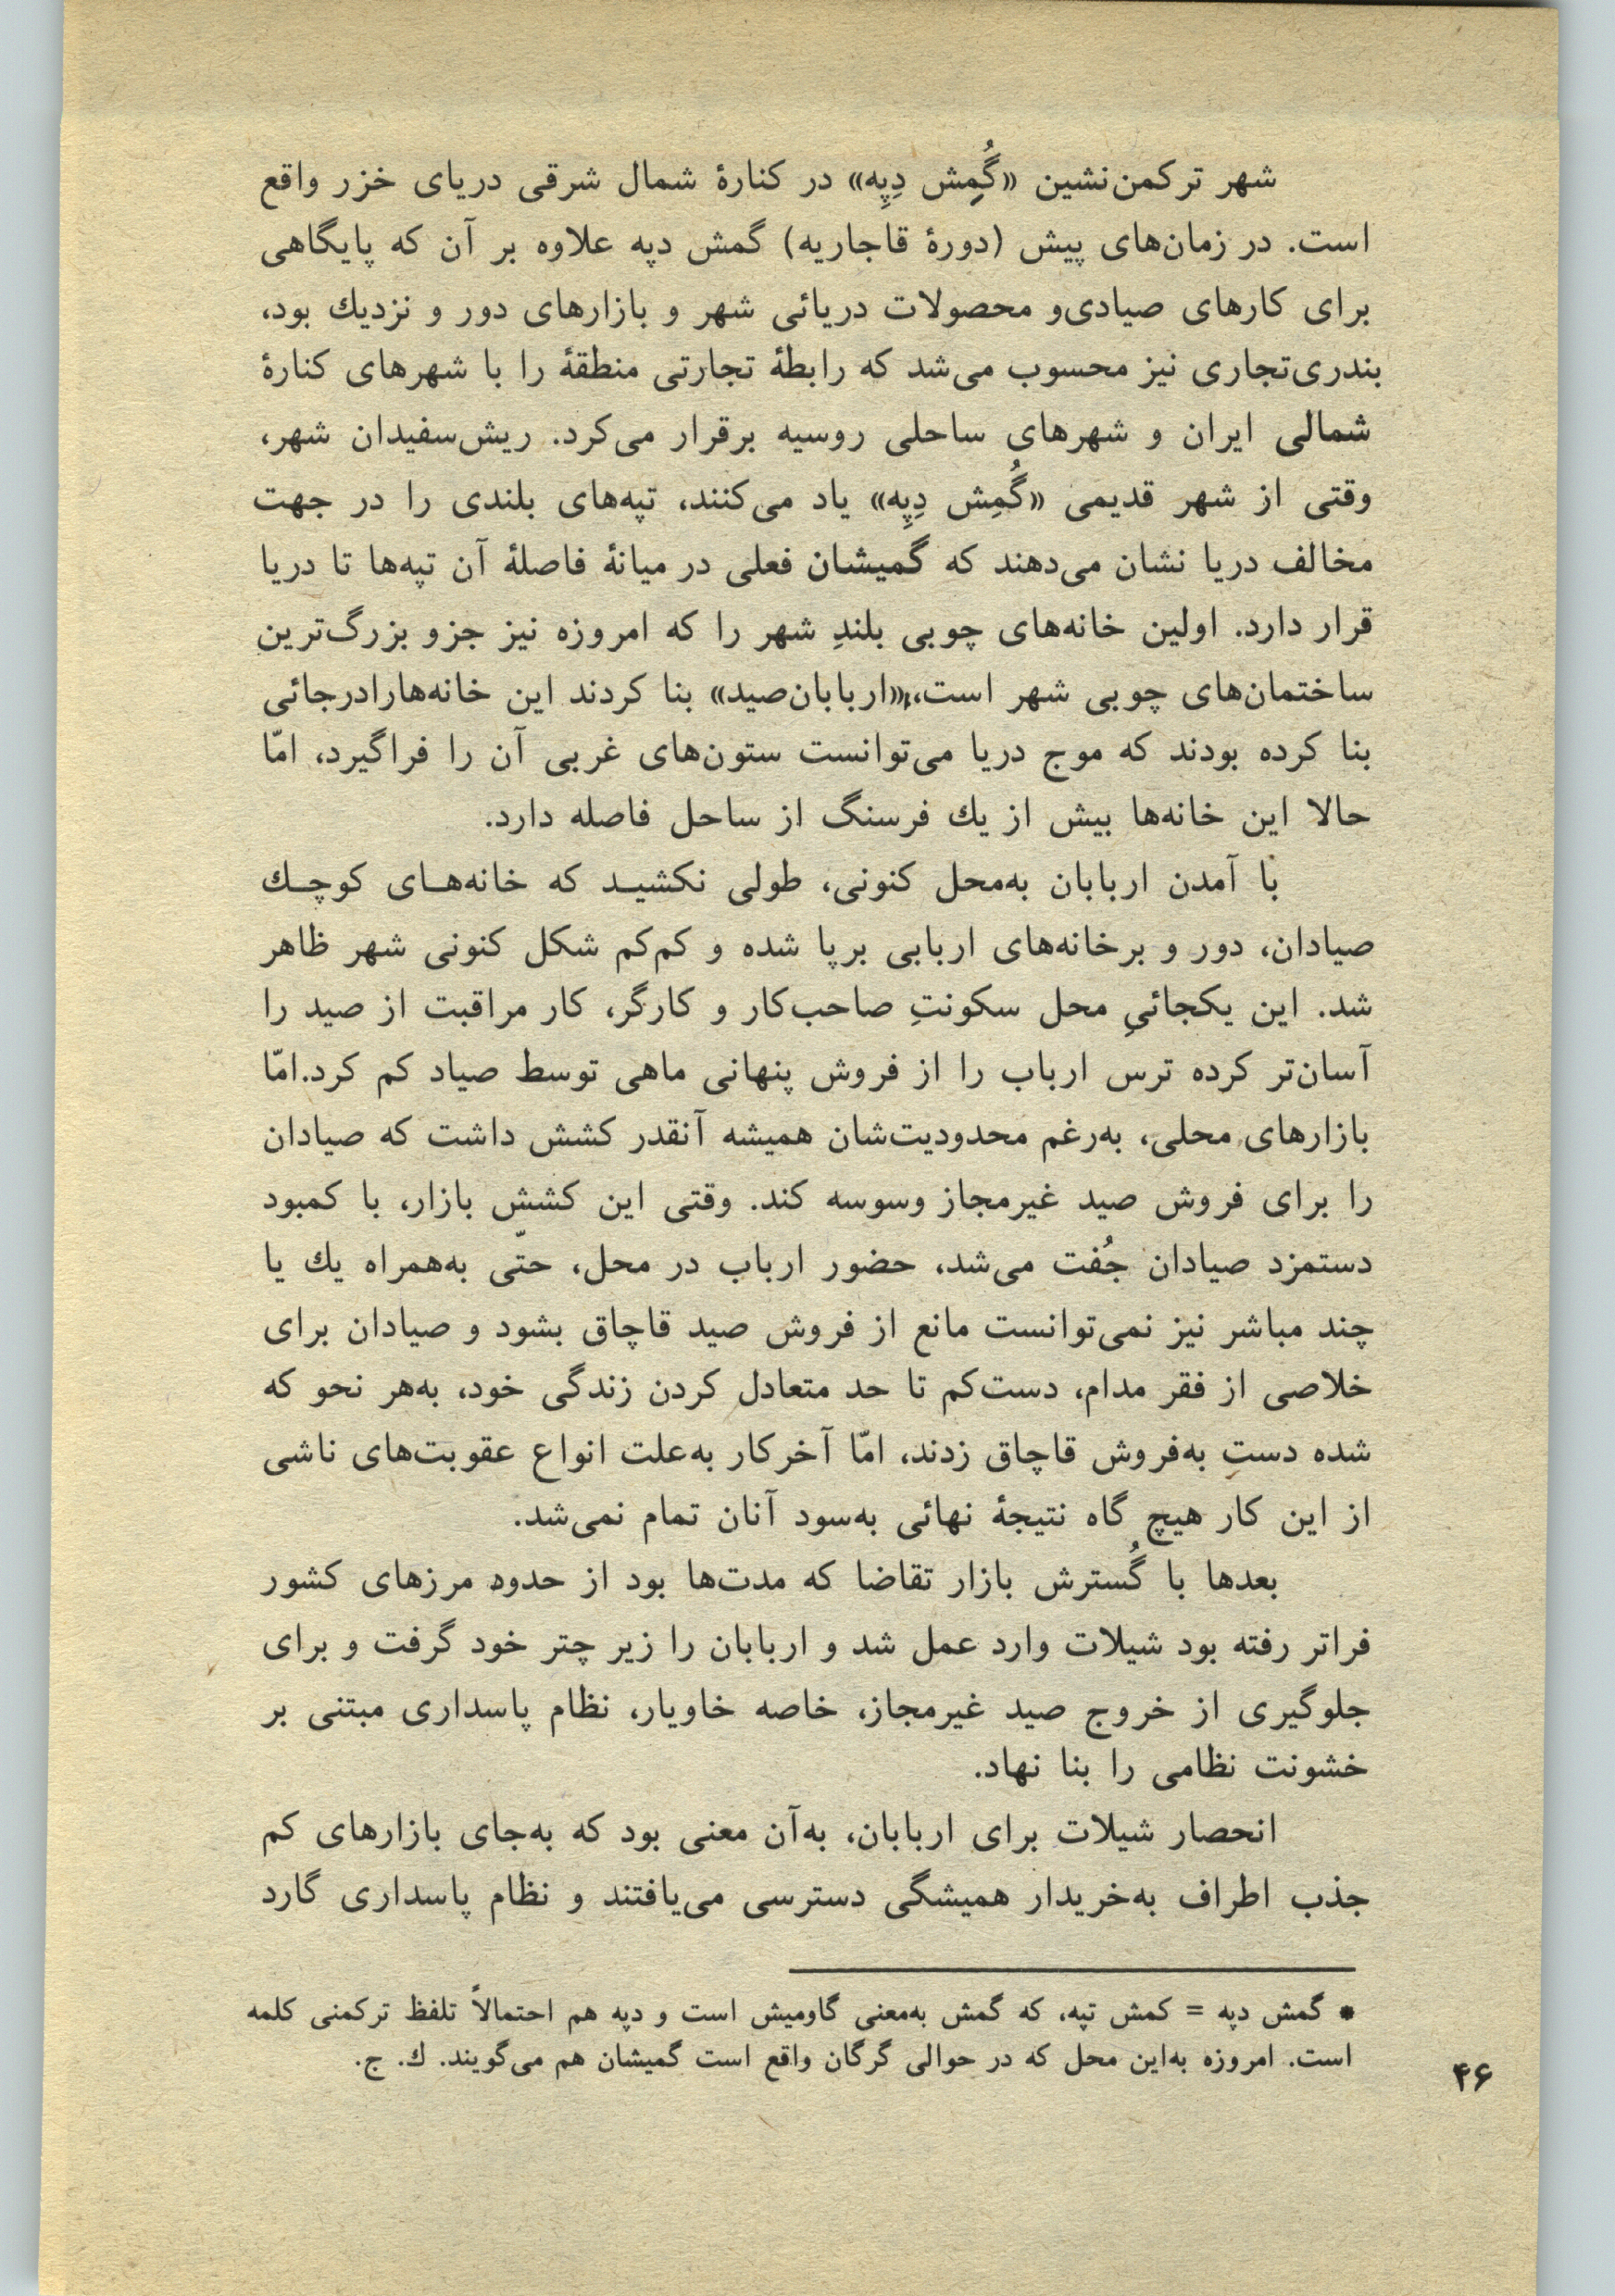 شهر ترکمن‌نشین «گُمِش دِپِه» در کنارهٔ شمال شرقی دریای خزر واقع
است. در زمان‌های پیش (دورهٔ قاجاریه) گمش دپه علاوه بر آن که پایگاهی
برای کارهای صیادی‌و محصولات دریائی شهر و بازارهای دور و نزدیك بود،
بندری‌تجاری نیز محسوب می‌شد که رابطهٔ تجارتی منطقهٔ را با شهرهای کنارهٔ
شمالی ایران و شهرهای ساحلی روسیه برقرار می‌کرد. ریش‌سفیدان شهر،
وقتی از شهر قدیمی «گُمِش دِپِه» یاد می‌کنند، تپه‌های بلندی را در جهت
مخالف دریا نشان می‌دهند که گمیشان فعلی در میانهٔ فاصلهٔ آن تپه‌ها تا دریا
قرار دارد. اولین خانه‌های چوبی بلندِ شهر را که امروزه نیز جزو بزرگ‌ترین
ساختمان‌های چوبی شهر است،«اربابان‌صید» بنا کردند این خانه‌هارادرجائی
بنا کرده بودند که موج دریا می‌توانست ستون‌های غربی آن را فراگیرد، امّا
حالا این خانه‌ها بیش از یك فرسنگ از ساحل فاصله دارد.
با آمدن اربابان به‌محل کنونی، طولی نکشیـد که خانه‌هـای کوچـك
صیادان، دور و برخانه‌های اربابی برپا شده و کم‌کم شکل کنونی شهر ظاهر
شد. این یکجائیِ محل سکونتِ صاحب‌کار و کارگر، کار مراقبت از صید را
آسان‌تر کرده ترس ارباب را از فروش پنهانی ماهی توسط صیاد کم کرد.امّا
بازارهای محلی، به‌رغم محدودیت‌شان همیشه آنقدر کشش داشت که صیادان
را برای فروش صید غیرمجاز وسوسه کند. وقتی این کشش بازار، با کمبود
دستمزد صیادان جُفت می‌شد، حضور ارباب در محل، حتّی به‌همراه یك یا
چند مباشر نیز نمی‌توانست مانع از فروش صید قاچاق بشود و صیادان برای
خلاصی از فقر مدام، دست‌کم تا حد متعادل کردن زندگی خود، به‌هر نحو که
شده دستِ به‌فروش قاچاق زدند، امّا آخرکار به‌علت انواع عقوبت‌های ناشی
از این کار هیچ گاه نتیجهٔ نهائی به‌سود آنان تمام نمی‌شد.
بعدها با گُسترش بازار تقاضا که مدت‌ها بود از حدود مرزهای کشور
فراتر رفته بود شیلات وارد عمل شد و اربابان را زیر چتر خود گرفت و برای
جلوگیری از خروج صید غیرمجاز، خاصه خاویار، نظام پاسداری مبتنی بر
خشونت نظامی را بنا نهاد.
انحصار شیلات برای اربابان، به‌آن معنی بود که به‌جای بازارهای کم
جذب اطراف به‌خریدار همیشگی دسترسی می‌یافتند و نظام پاسداری گارد
* گمش دپه = کمش تپه، که گمش به‌معنی گاومیش است و دپه هم احتمالاً تلفظ ترکمنی کلمه
است. امروزه به‌این محل که در حوالی گرگان واقع است گمیشان هم می‌گویند. ك. ج.
۴۶